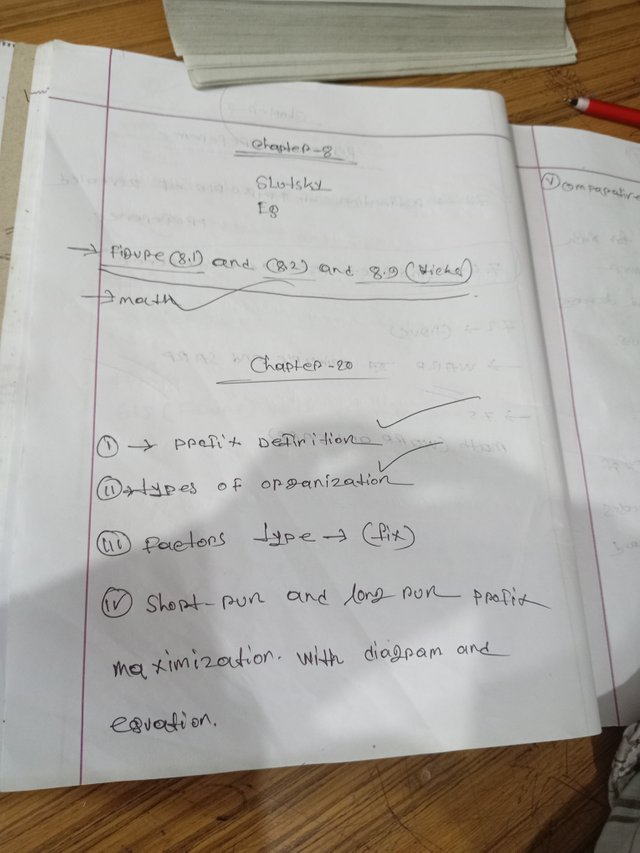 Chapter-8
Slutsky
Eq
→ Figure (8.1) and (8.2) and 8.9 (Hicks)
→ math
Chapter-20
(i) → profit Definition
(ii) → types of organization
(iii) factors type → (fix)
(iv) Short-run and long run profit
maximization. with diagram and
equation.
(v) Comparative